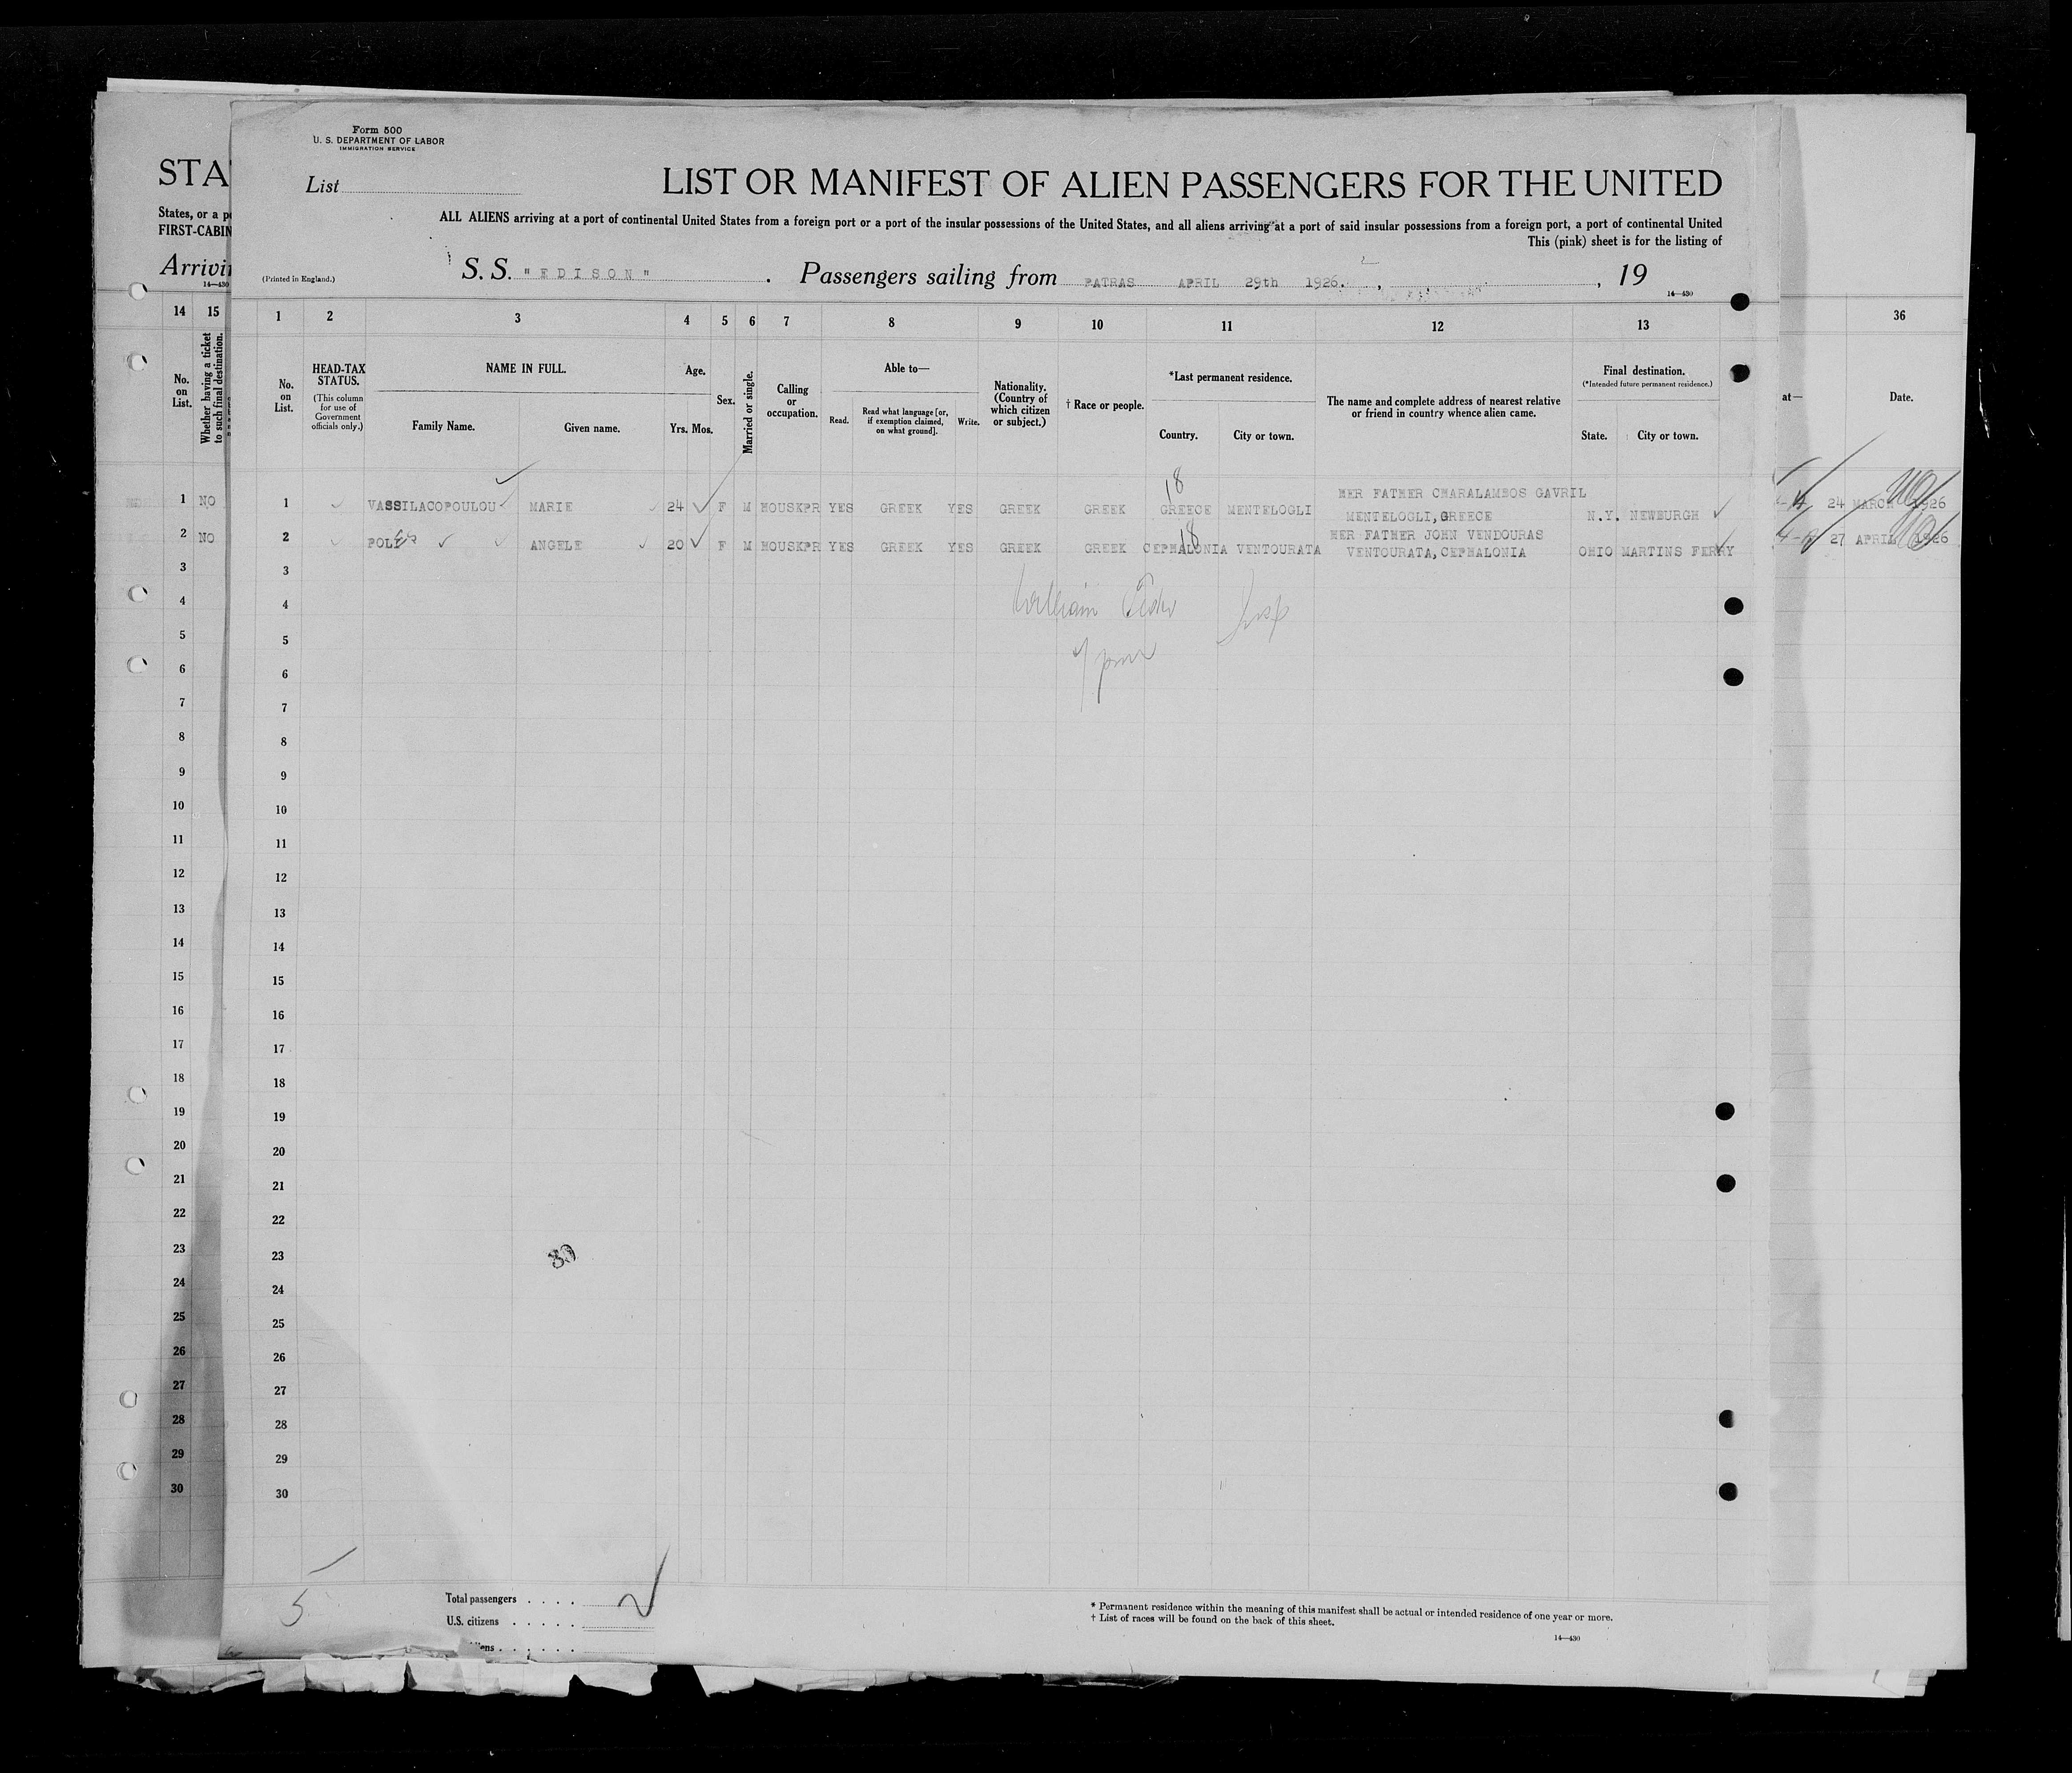 Form 500
U. S. DEPARTMENT OF LABOR
IMMIGRATION SERVICE
STA
List
LIST OR MANIFEST OF ALIEN PASSENGERS FOR THE UNITED
States, or a p
FIRST-CABIN
ALL ALIENS arriving at a port of continental United States from a foreign port or a port of the insular possessions of the United States, and all aliens arriving at a port of said insular possessions from a foreign port, a port of continental United
This (pink) sheet is for the listing of
Arrivi
14—430
(Printed in England.)
S. S. "EDISON" . Passengers sailing from PATRAS APRIL 29th 1926. , , 19
14—430
14 15 1 2 3 4 5 6 7 8 9 10 11 12 13 36
No. on List.
Whether having a ticket to such final destination.
No. on List.
HEAD-TAX STATUS.
(This column for use of Government officials only.)
NAME IN FULL.
Family Name.
Given name.
Age.
Yrs. Mos.
Sex.
Married or single.
Calling or occupation.
Able to—
Read.
Read what language [or, if exemption claimed, on what ground].
Write.
Nationality. (Country of which citizen or subject.)
† Race or people.
*Last permanent residence.
Country.
City or town.
The name and complete address of nearest relative or friend in country whence alien came.
Final destination.
(*Intended future permanent residence.)
State.
City or town.
at—
Date.
18
1 NO 1 VASSILACOPOULOU MARIE 24 F M HOUSKPR YES GREEK YES GREEK GREEK GREECE MENTELOGLI HER FATHER CHARALAMBOS GAVRIL MENTELOGLI, GREECE N.Y. NEWBURGH 24 MARCH 1926
18
2 NO 2 ANGELE 20 F M HOUSKPR YES GREEK YES GREEK GREEK CEPHALONIA VENTOURATA HER FATHER JOHN VENDOURAS VENTOURATA, CEPHALONIA OHIO MARTINS FERRY 27 APRIL 1926
3 3
4 4
William
5 5
6 6
7 7
8 8
9 9
10 10
11 11
12 12
13 13
14 14
15 15
16 16
17 17
18 18
19 19
20 20
21 21
22 22
23 23
30
24 24
25 25
26 26
27 27
28 28
29 29
30 30
5
Total passengers . . . .
U.S. citizens . . . . .
iens . . . . . .
* Permanent residence within the meaning of this manifest shall be actual or intended residence of one year or more.
† List of races will be found on the back of this sheet.
14—430